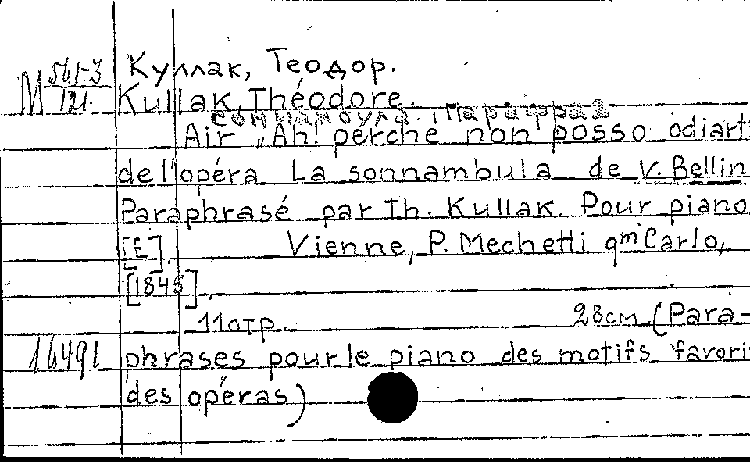 Куллак, Теодор.
М 561-3/121 Kullak, Théodore.
Сомнамбула. Парафраз
Air „Ah! perche non posso odiart
de l'opéra La sonnambula de V. Bellin
Paraphrasé par Th. Kullak. Pour piano
[E]. Vienne, P. Mechetti qm Carlo,
[1845].
11 стр. 28 см (Para-
16491 phrases pour le piano des motifs favori
des opéras)